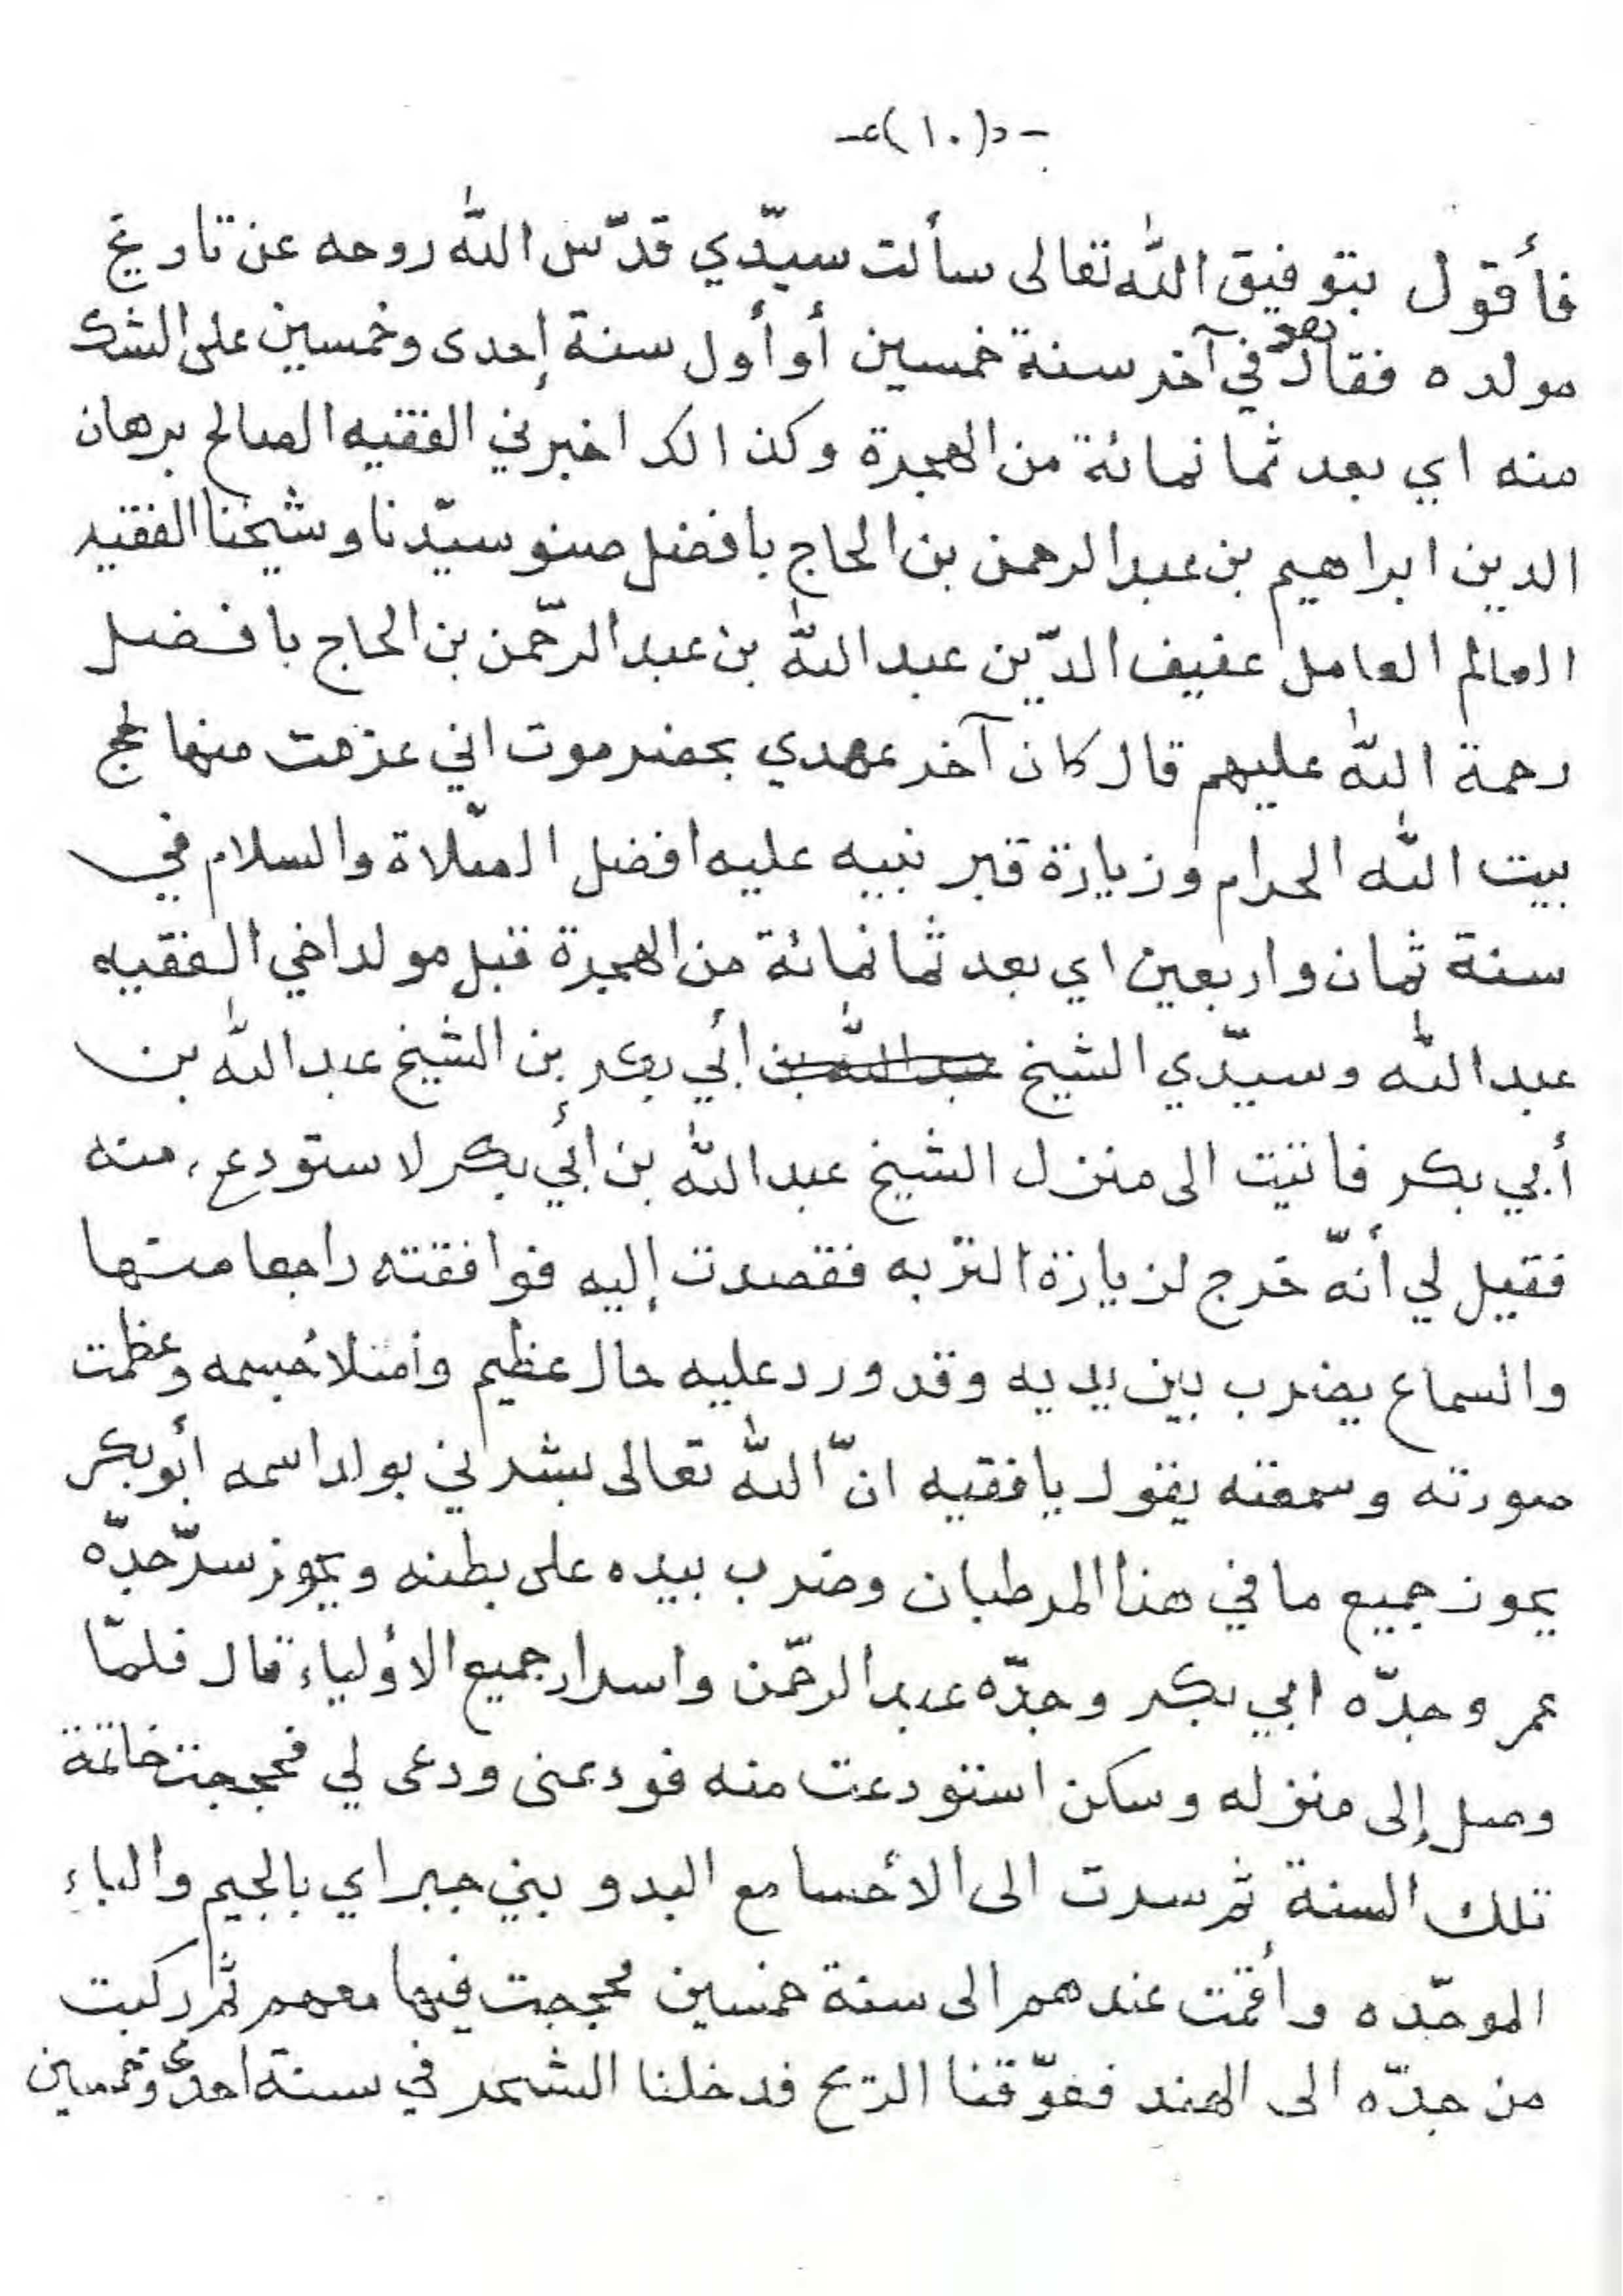 -(١٠)-
فأقول بتوفيق الله تعالى سألت سيّدي قدّس الله روحه عن تاريخ
مولده فقال بعد في آخر سنة خمسين أو أول سنة إحدى وخمسين على الشك
منه اي بعد ثمانمائة من الهجرة وكذالك اخبرني الفقيه الصالح برهان
الدين ابراهيم بن عبدالرحمن بن الحاج بافضل صنو سيّدنا وشيخنا الفقيه
العالم العامل عفيف الدّين عبدالله بن عبدالرحّمن بن الحاج بافضل
رحمة الله عليهم قال كان آخر عهدي بحضرموت اني عزمت منها لحج
بيت الله الحرام وزيارة قبر نبيه عليه افضل الصّلاة والسلام في
سنة ثمان واربعين اي بعد ثمانمائة من الهجرة قبل مولد اخي الفقيه
عبدالله وسيّدي الشيخ عبدالله بن أبي بكر بن الشيخ عبدالله بن
أبي بكر فاتيت الى منزل الشيخ عبدالله بن أبي بكر لاستودع منه
فقيل لي أنّه خرج لزيارة التربه فقصدت إليه فوافقته راجعا منها
والسماع يضرب بين يديه وقد ورد عليه حال عظيم وأمتلأ جسمه وعظمت
صورته وسمعته يقول يافقيه انّ الله تعالى بشرني بولد اسمه أبوبكر
يحوز جميع مافي هذا المرطبان وضرب بيده على بطنه ويحوز سرّ جدّه
عمر وجدّه ابي بكر وجدّه عبدالرحّمن واسرار جميع الأولياء قال فلمّا
وصل إلى منزله وسكن استودعت منه فودعنى ودعى لي فحججت خاتمة
تلك السنة ثم سرت الى الأحسا مع البدو بني جبر اي بالجيم والباء
الموحّده وأقمت عندهم الى سنة خمسين فحججت فيها معهم ثم ركبت
من جدّه الى الهند فعوّقنا الريح فدخلنا الشحر في سنة احدى وخمسين